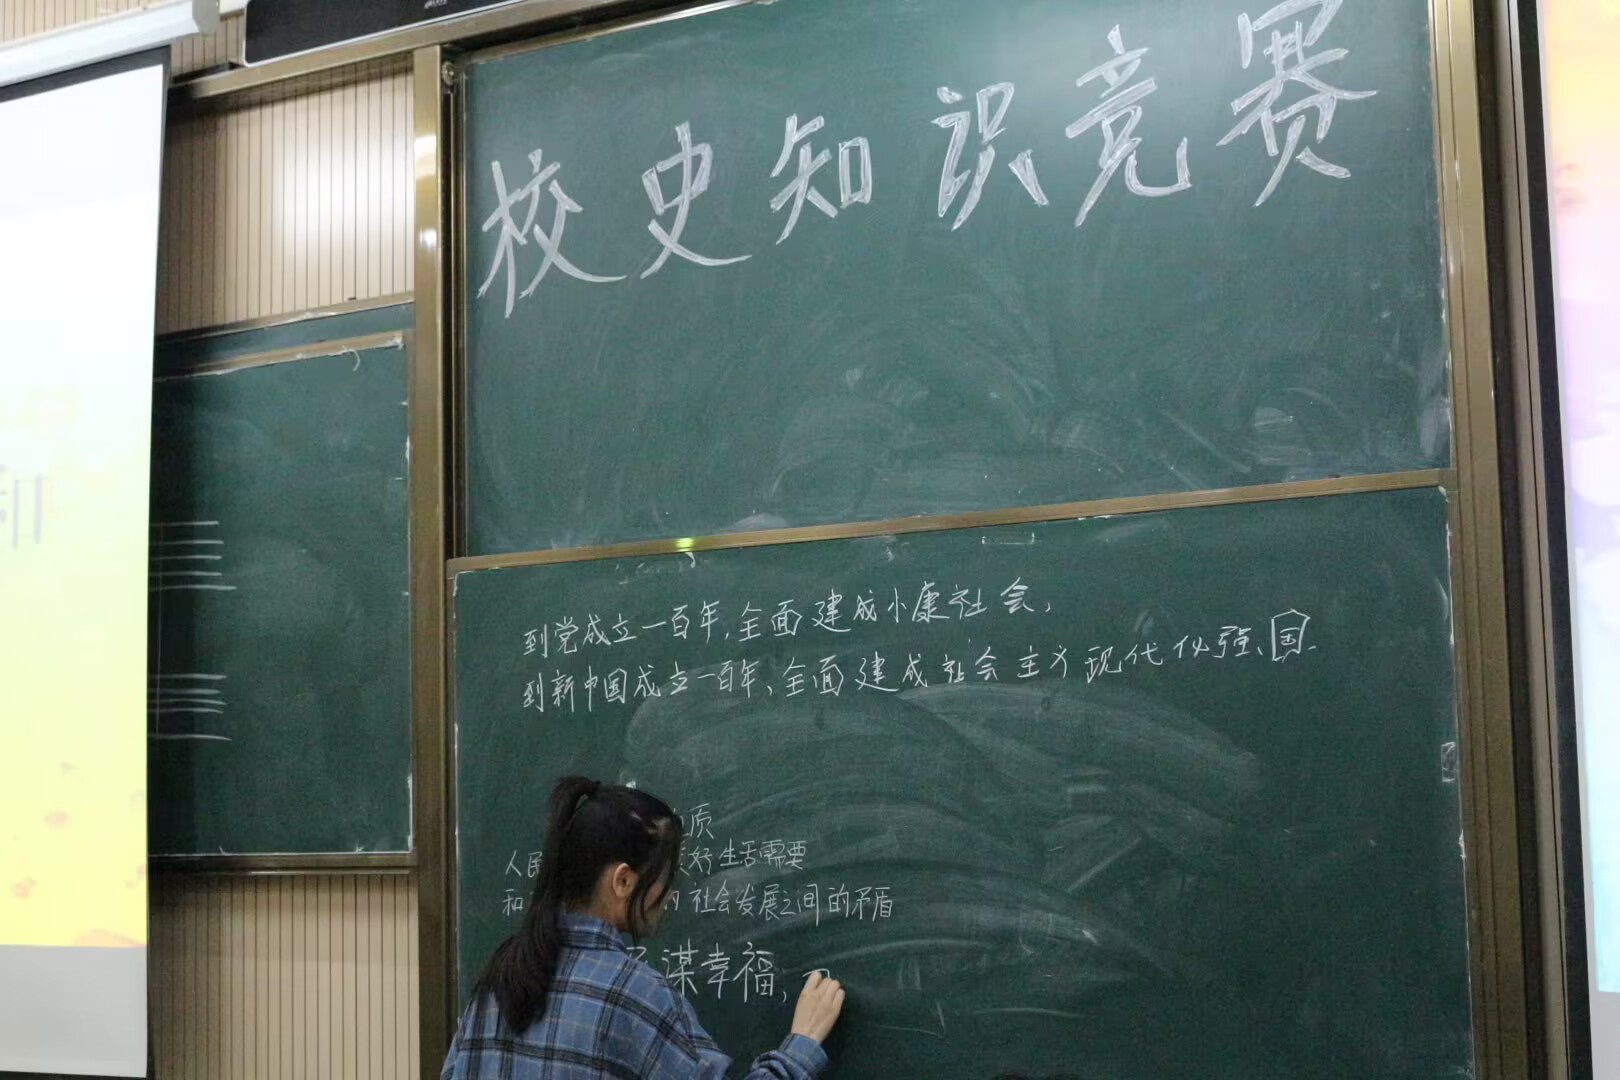 校史知识竞赛
到党成立一百年,全面建成小康社会,
到新中国成立一百年、全面建成社会主义现代化强国.
质
人民 好生活需要
和 社会发展之间的矛盾
谋幸福,